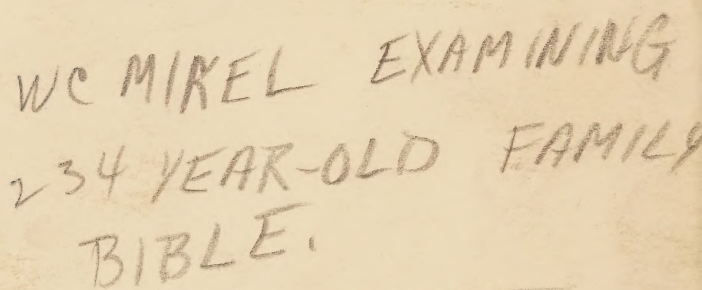 WC MIKEL EXAMINING
234 YEAR-OLD FAMILY
BIBLE.